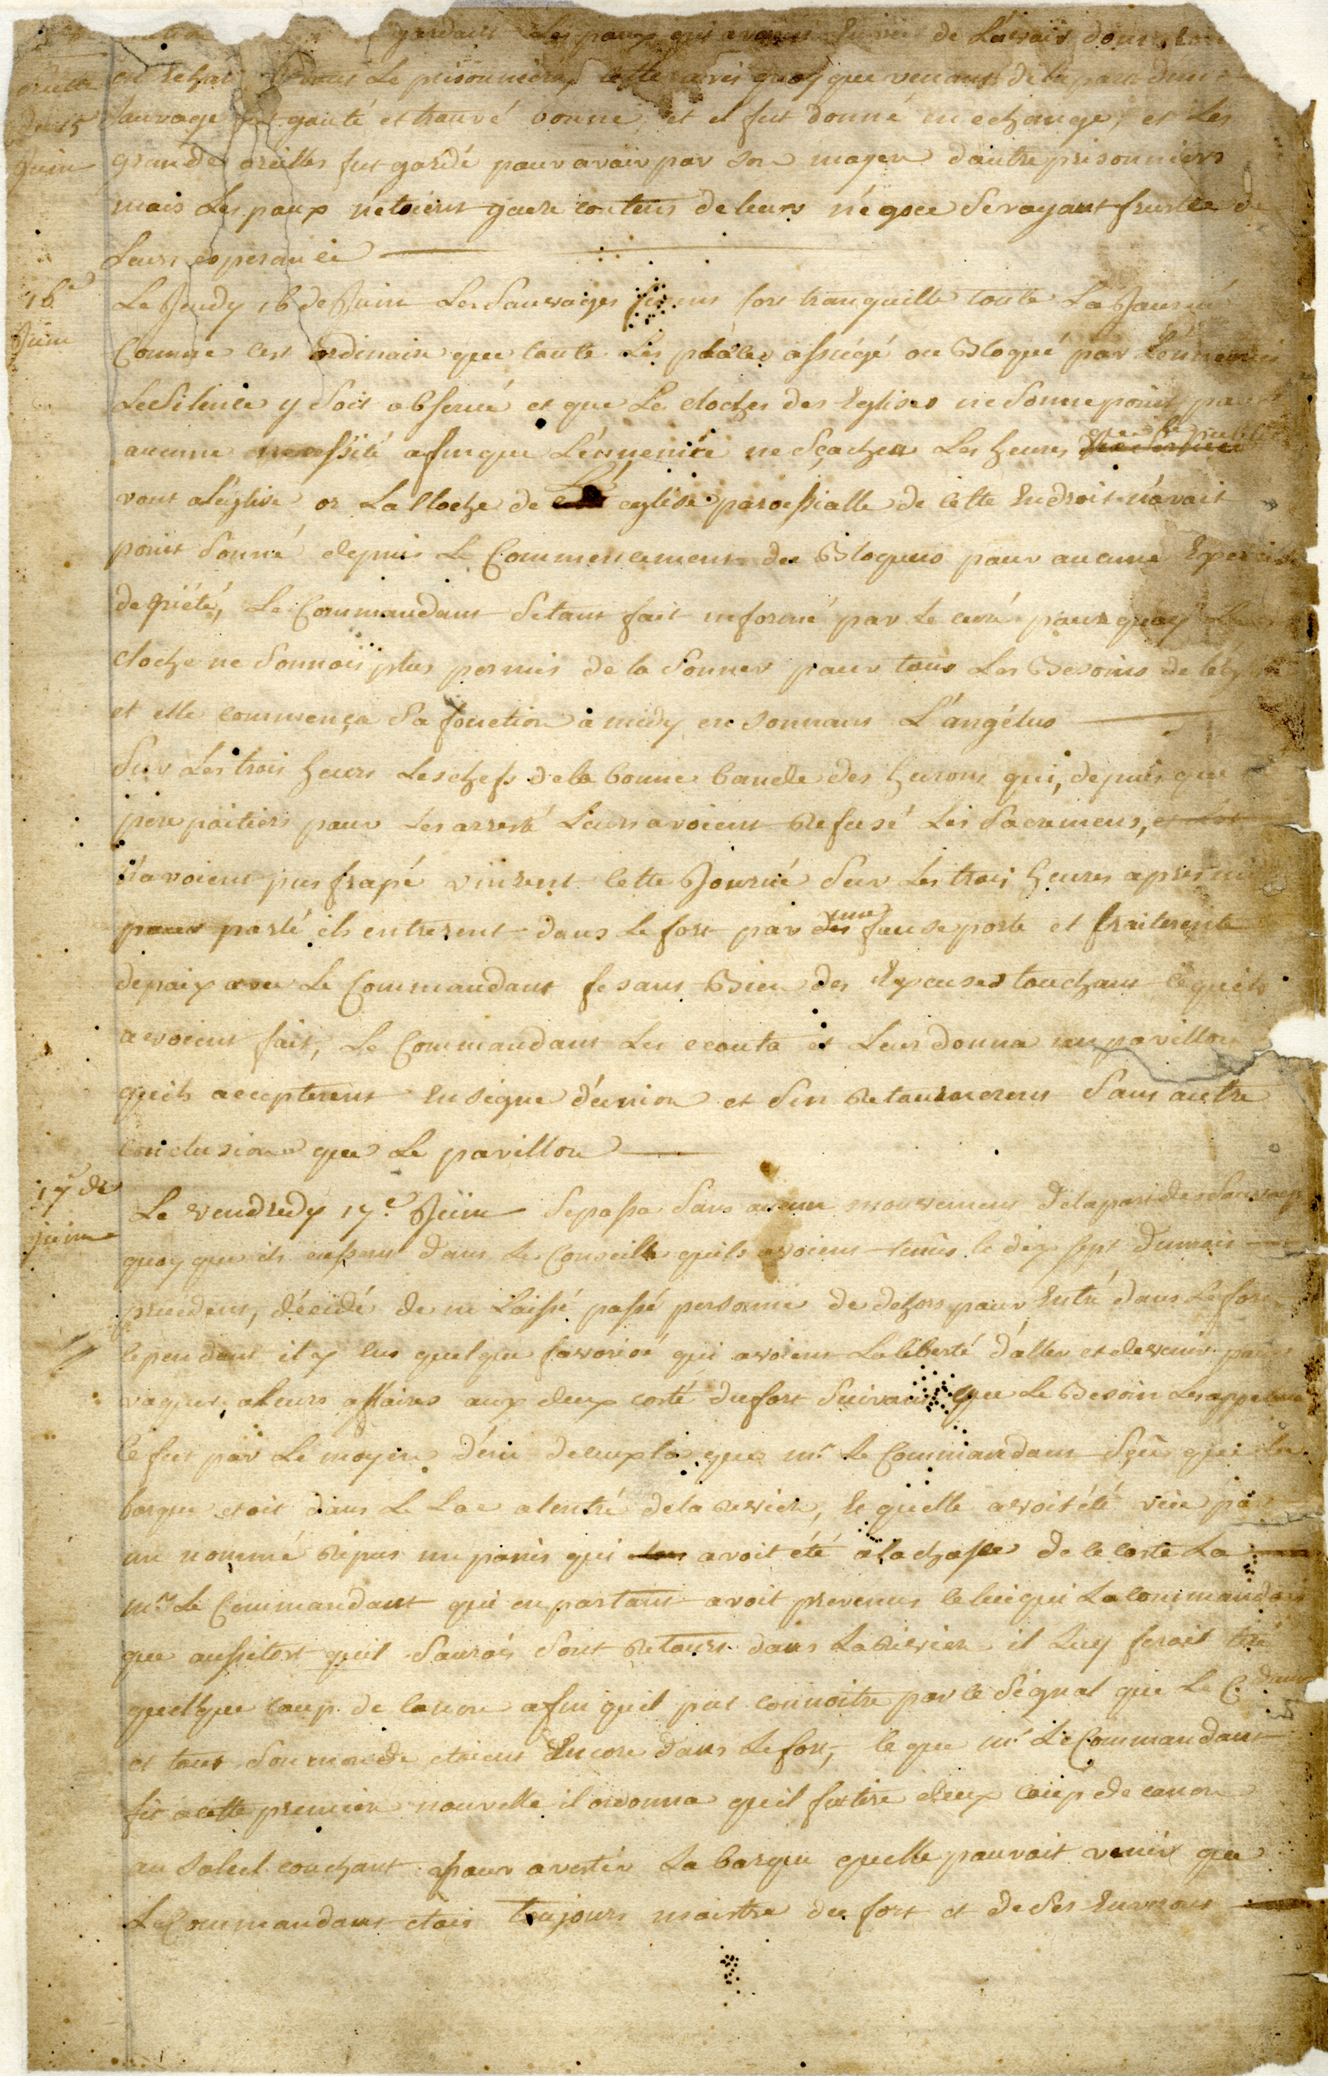 gardant Les poux qui avoient de Lavoir donné
suitte
du 15
Juin
en echange Le prisonnier, cette avis quoy que venant de la part d'un
sauvage gouté et trouvé bonne, et il fut donné en echange, et Les
grande oreilles fut gardé pour avoir par son moyen d'autre prisonniers
mais Les poux n'etoient guere contens de leurs négoce se voyant frustré de
Leurs esperance
16e
Juin
Le Jeudy 16 de Juin Les Sauvages furent fort tranquille toute La Journé
Comme cest ordinaire que toute Les places assiégé ou Bloqué par L'ennemis
Le Silence y Soit observé et que Le cloches des Eglises ne Sonne point pour
aucune necessité afin que L'énnemie ne Sçachen Les heures que le public
vont a léglise or La Cloche de L' eglise paroissialle de cette Endroit n'avoit
point Sonné depuis Le Commencement des Bloques pour aucune Exercise
de piété, Le Commandant Sétant fait informé par le curé pourquoy La
cloche ne Sonnois plus permis de la Sonner pour tous Les Besoins de léglise
et elle commença Sa fonction a midy en Sonnans L'angélus
Sur Les trois heures Les chefs de la bonne bande des hurons qui, depuis que
pere poitiers pour Les arresté Leurs avoient Refusé Les Sacremens, et
n'avoient pas frapé vinrent cette Journé Sur Les trois heures apres midy
pour parlé ils entrerent dans Le fort par une fause porte et traiterent
de paix avec Le Commandant fesant Bien des Excuses touchant ce quils
avoient fait, Le Commandant Les ecouta et Leurs donna un pavillon
quils accepterent En Signe d'eunion et Sen Retournerens Sans autre
conclusion que Le pavillon
17 de
juin
Le vendredy 17e Juin Se passa Sans aucun mouvement de la part des Sauvages
quoy que ils eussent dans Le Conseille quils avoient tenüs le dix sept du mois
precedent, décidé de ne Laissé passé personne de dehors pour Entré dans Le fort
cependant il y Eus quelque favorisé qui avoient La liberté d'aller et de venir pour
vaquer a Leurs affaires aux deux costé du fort Suivant que Le Besoin Les appelloit
ce fut par Le moyen d'éun deceux la que mr Le Commandant Sçû que La
barque etoit dans Le Lac a lentré de la Riviere, Le quelle avoit été veüe par
un nommé Repus un panis qui avoit été a La chasse de ce coste La
mr Le Commandant qui en partant avoit prevenus celui qui La commandoit
que aussitost quil Sauroit Sont Retours dans La Riviere il Luy feroit tiré
quelque coup de canon afin quil put connoitre par ce Signal que Le C. dant
et tout Son monde etoient Encore dans Le fort, ce que mr Le Commandant
fit a cette premiere nouvelle il ordonna quil fut tiré deux coup de canon
au Soleil couchant pour avertir La barque quelle pouvoit venir que
Le Commandant etois toujours maistre du fort et de Ses Environs